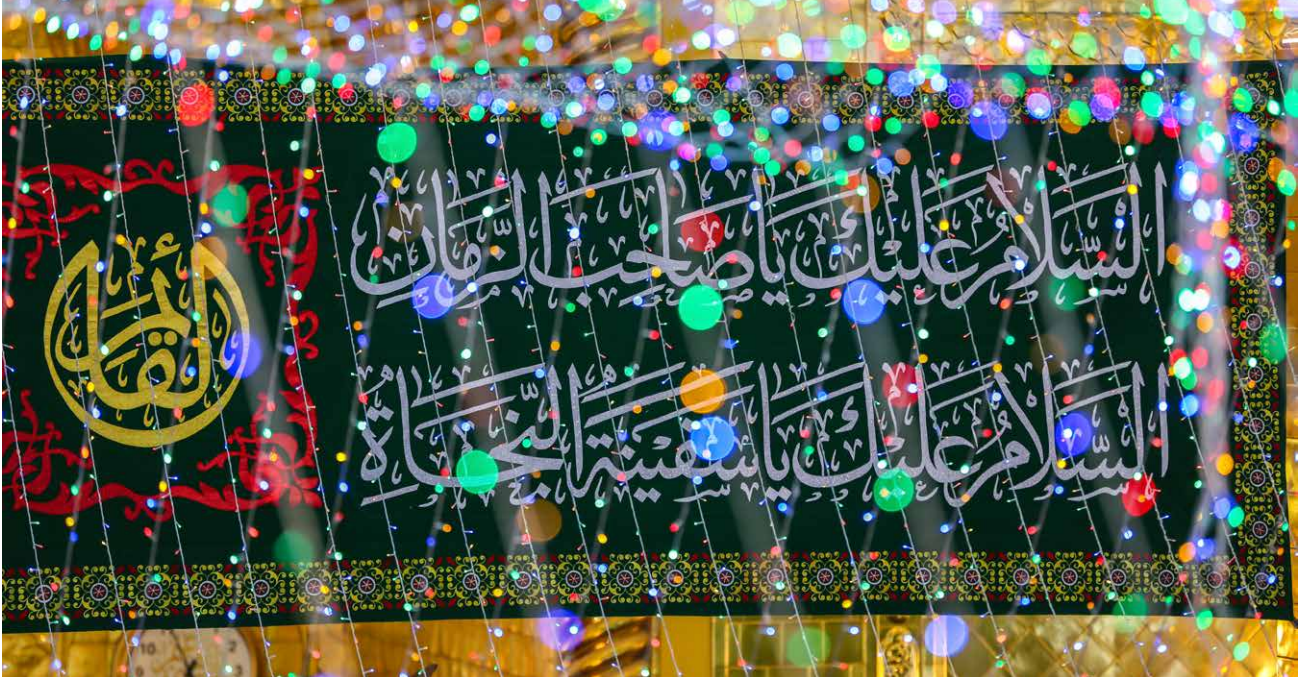 السَّلَامُ عَلَيْكَ يَا صَاحِبَ الزَّمَانِ
السَّلَامُ عَلَيْكَ يَا سَفِينَةَ النَّجَاةِ
القائم
10
2
3